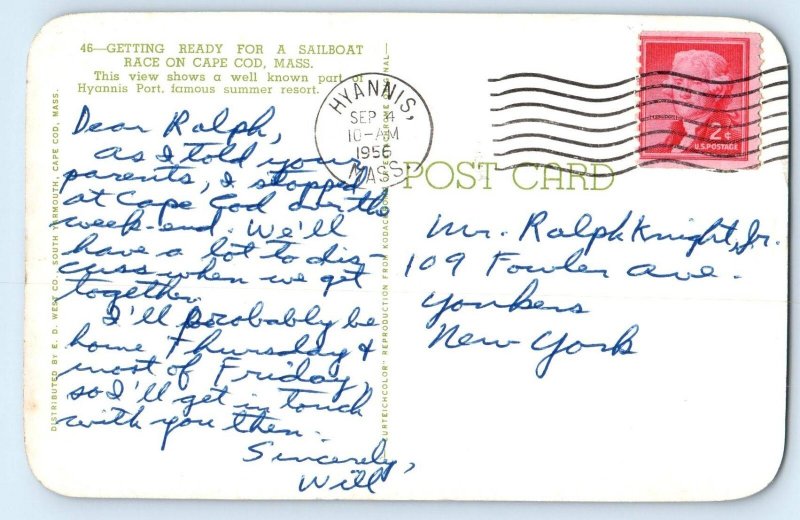 46—GETTING READY FOR A SAILBOAT
RACE ON CAPE COD, MASS.
This view shows a well known part of
Hyannis Port, famous summer resort.
Dear Ralph,
As I told your
parents, I stopped
at Cape Cod over the
week-end. We'll
have a lot to dis-
cuss when we get
together.
I'll probably be
home Thursday &
most of Friday,
so I'll get in touch
with you then.
Sincerely,
Will
DISTRIBUTED BY E. D. WEST CO., SOUTH YARMOUTH, CAPE COD, MASS.
"CURTEICHCOLOR" REPRODUCTION FROM KODACHROME ORIGINAL
HYANNIS,
SEP 14
10-AM
1956
MASS.
2¢
U.S. POSTAGE
POST CARD
Mr. Ralph Knight, Jr.
109 Fowler Ave.
Yonkers
New York